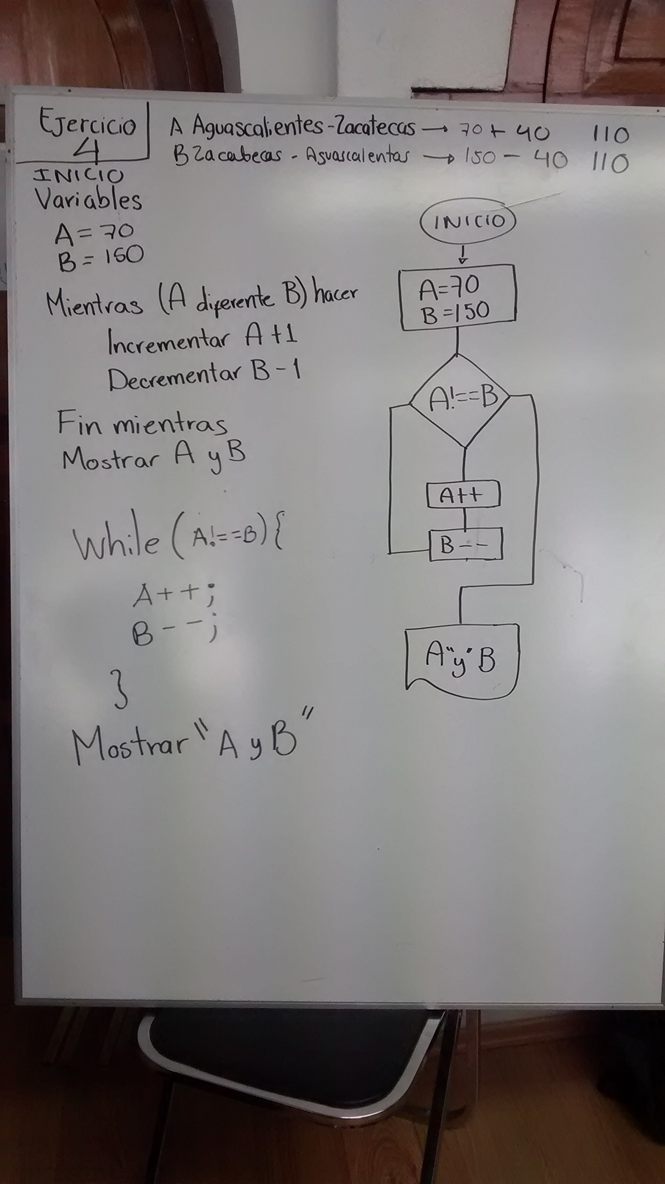 Ejercicio
4
A Aguascalientes-Zacatecas → 70 + 40 110
B Zacatecas - Aguascalentas → 150 - 40 110
INICIO
Variables
A = 70
B = 150
Mientras (A diferente B) hacer
Incrementar A+1
Decrementar B-1
Fin mientras
Mostrar A y B
While (A!==B){
A++;
B--;
}
Mostrar "A y B"
INICIO
A=70
B=150
A!==B
A++
B--
A"y"B